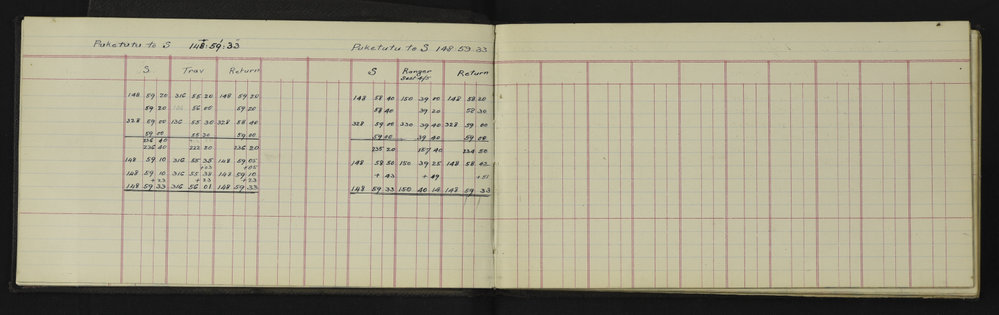 Puketutu to S 148.59.33
S Trav Return
148 59 20 316 55 20 148 59 20
59 20 56 00 59 20
328 59 00 136 55 30 328 58 40
59 00 55 30 59 00
236 40
236 40 222 20 236 20
148 59 10 316 55 35 148 59 05
+23 +05
148 59 10 316 55 38 148 59 10
+23 +23 +23
148 59 33 316 56 01 148 59 33
Puketutu to S 148.59.33
S Ranger Return
148 58 40 150 39 00 148 58 20
58 40 39 20 58 30
328 59 00 330 39 40 328 59 00
59 00 39 40 59 00
235 20 157 40 234 50
148 58 50 150 39 25 148 58 42
+ 43 + 49 +51
148 59 33 150 40 14 148 59 33